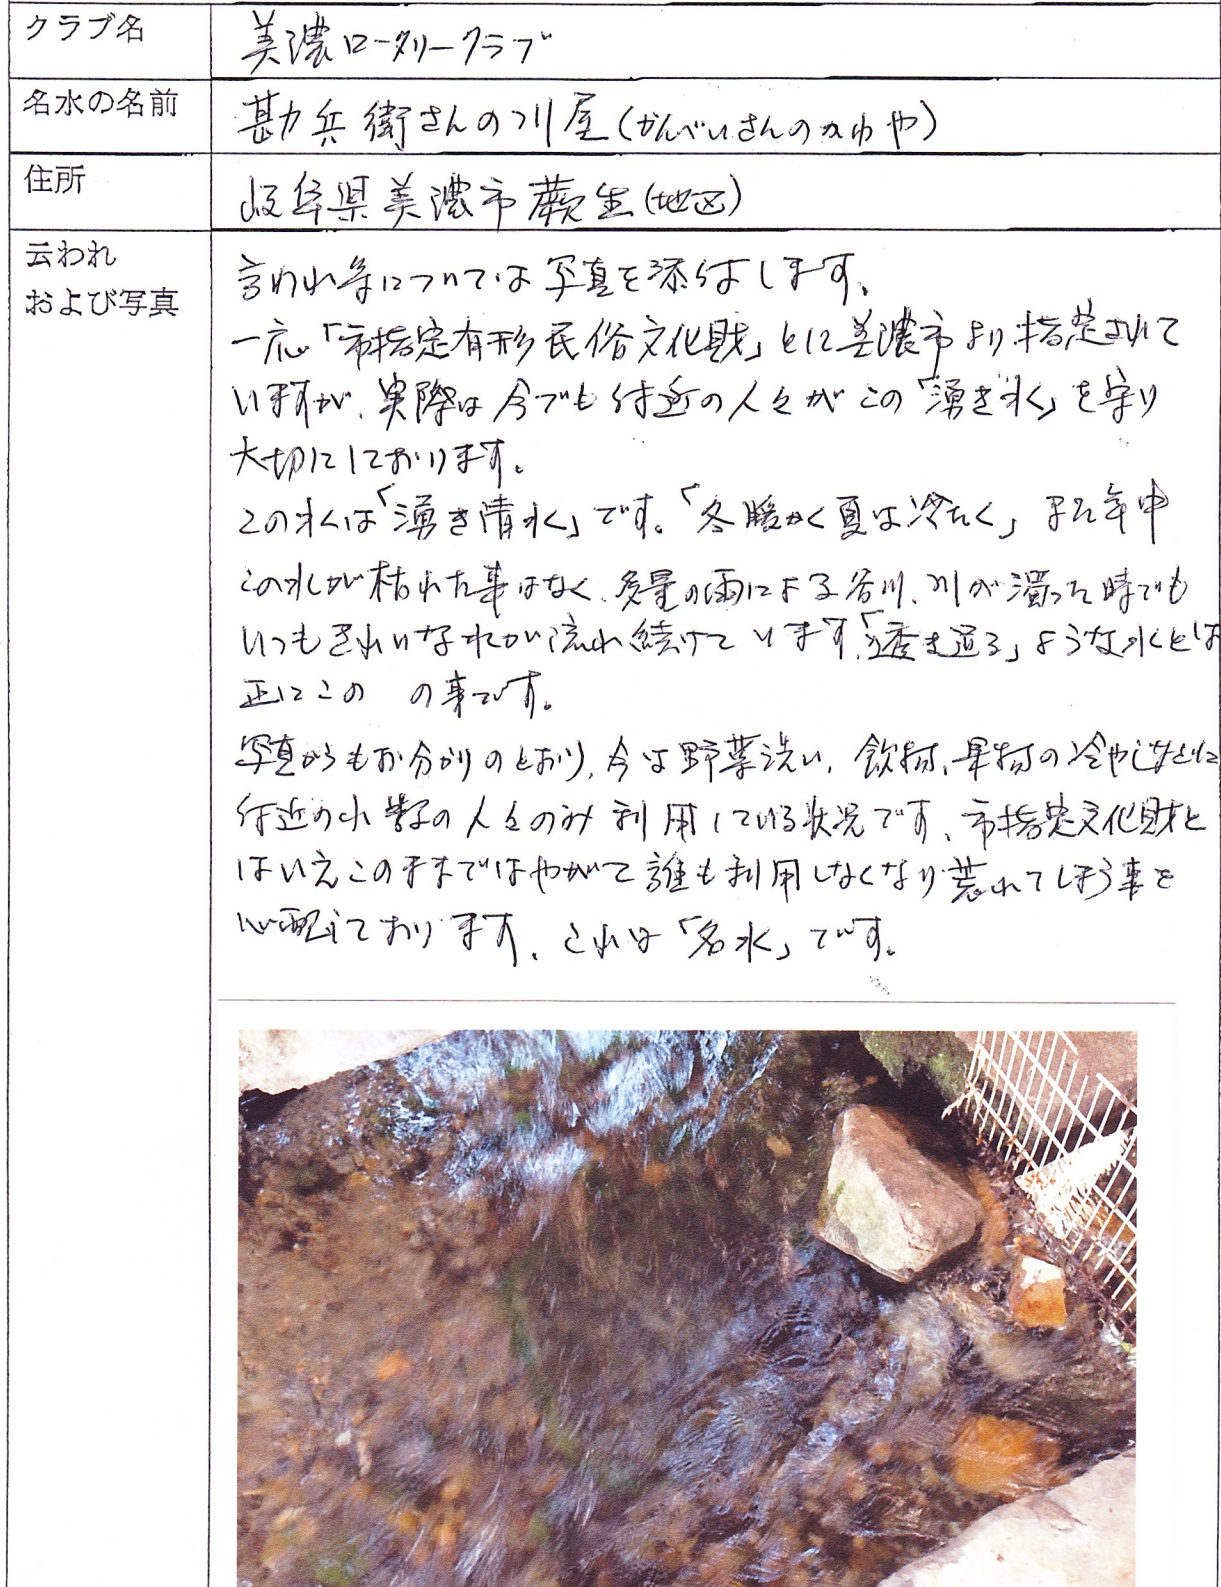 クラブ名
美濃ロータリークラブ
名水の名前
勘兵衛さんの川屋(かんべいさんのかわや)
住所
岐阜県美濃市蕨生(地区)
云われ
および写真
言われ等については写真を添付します。
一応「市指定有形民俗文化財」とに美濃市より指定されて
いますが、実際は今でも付近の人々がこの「湧き水」を守り
大切にしております。
この水は「湧き清水」です。「冬暖かく夏は冷たく」また年中
この水が枯れた事はなく、多量の雨による谷川、川が濁った時でも
いつもきれいな水が流れ続けています。「透き通る」ような水とは
正にこの の事です。
写真からもお分かりのとおり、今は野菜洗い、飲物、果物の冷やしなどに
付近の小数の人々のみ利用している状況です、市指定文化財と
はいえこのままではやがて誰も利用しなくなり荒れてしまう事を
心配しております、これは「名水」です。